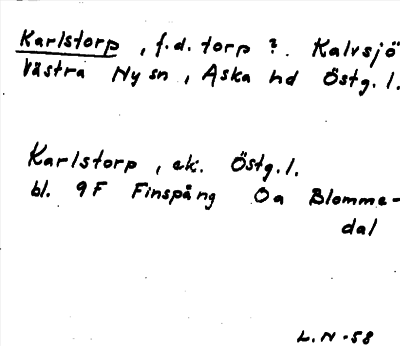 Karlstorp, f.d. torp ?. Kalvsjö
Västra Ny sn, Aska hd Östg.l.
Karlstorp, ek. Östg.l.
bl. 9F Finspång Oa Blomme-
dal
L.N-58